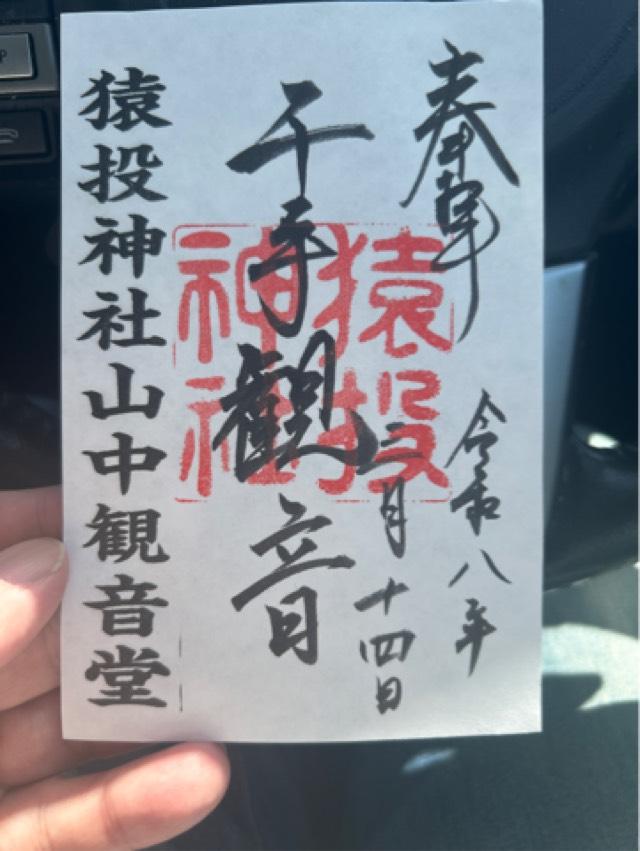 奉拝
令和八年
二月十四日
千手観音
猿投
神社
猿投神社山中観音堂